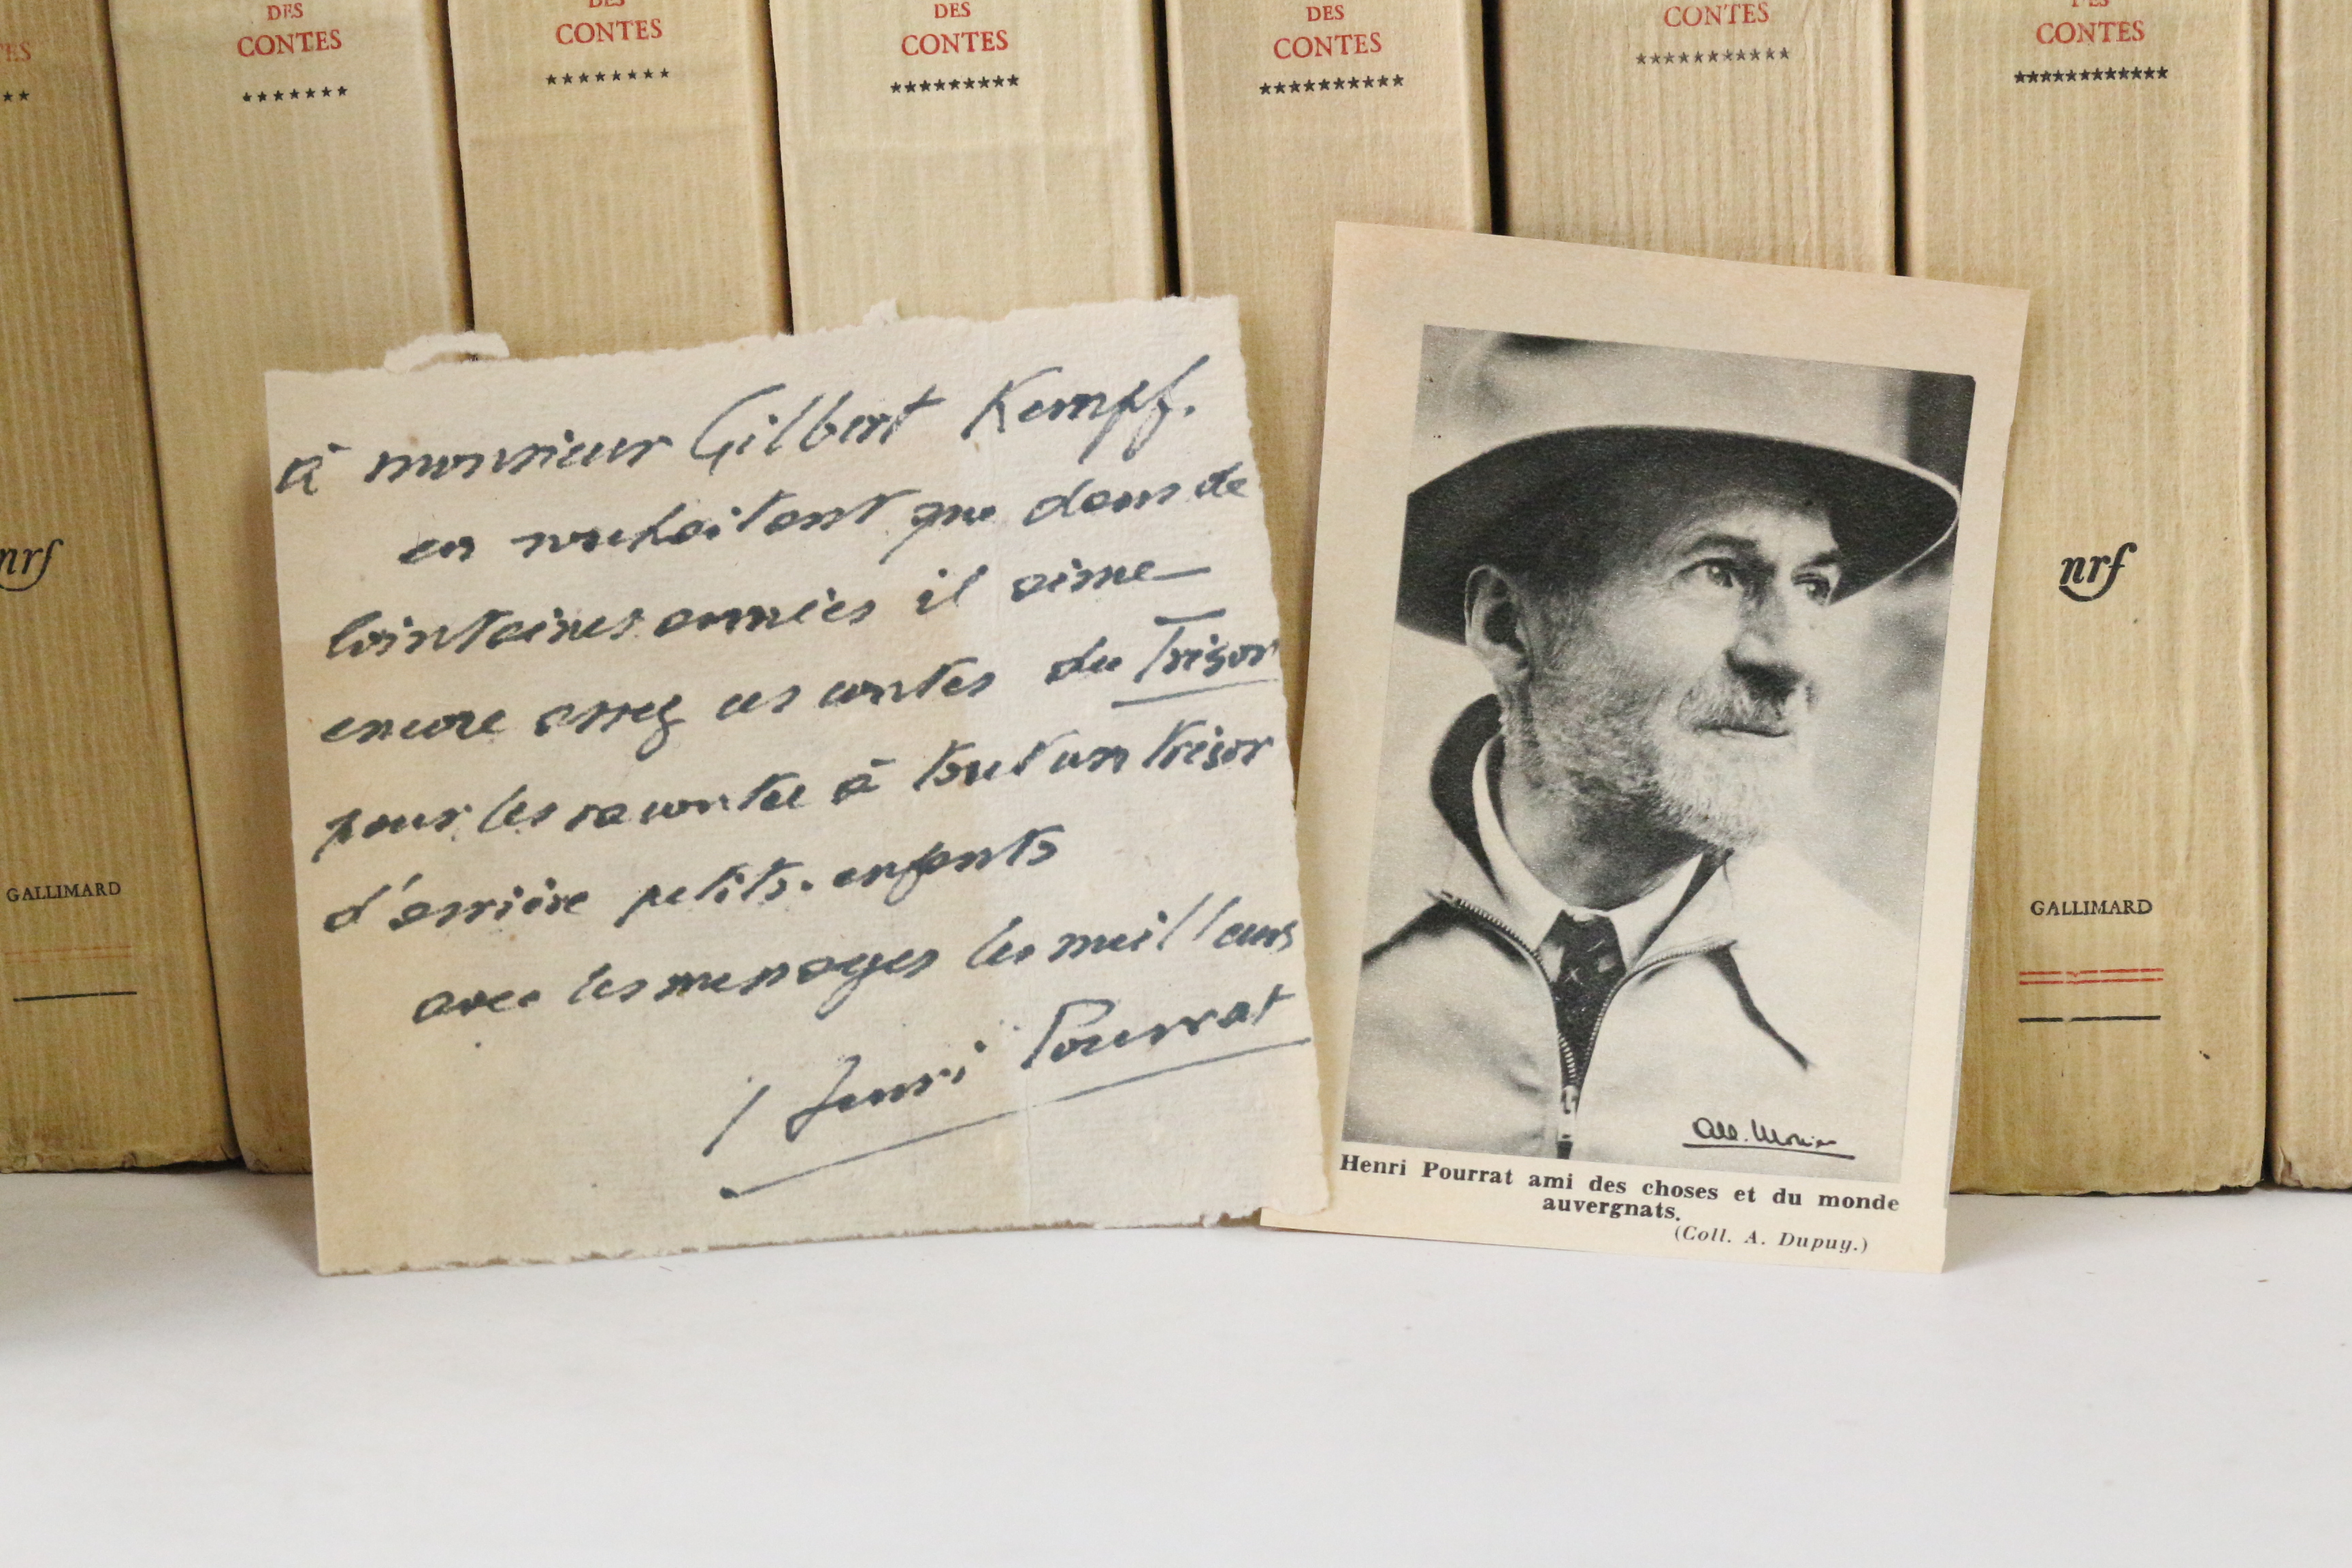 DES
CONTES
*******
CONTES
********
DES
CONTES
*********
DES
CONTES
**********
CONTES
***********
CONTES
************
à monsieur Gilbert Kempff.
en souhaitant que dans de
lointaines années il aime
encore assez ces contes du Trésor
pour les raconter à tout un trésor
d'arrière petits-enfants
avec les messages les meilleurs
Henri Pourrat
Henri Pourrat ami des choses et du monde
auvergnats.
(Coll. A. Dupuy.)
nrf
GALLIMARD
nrf
GALLIMARD